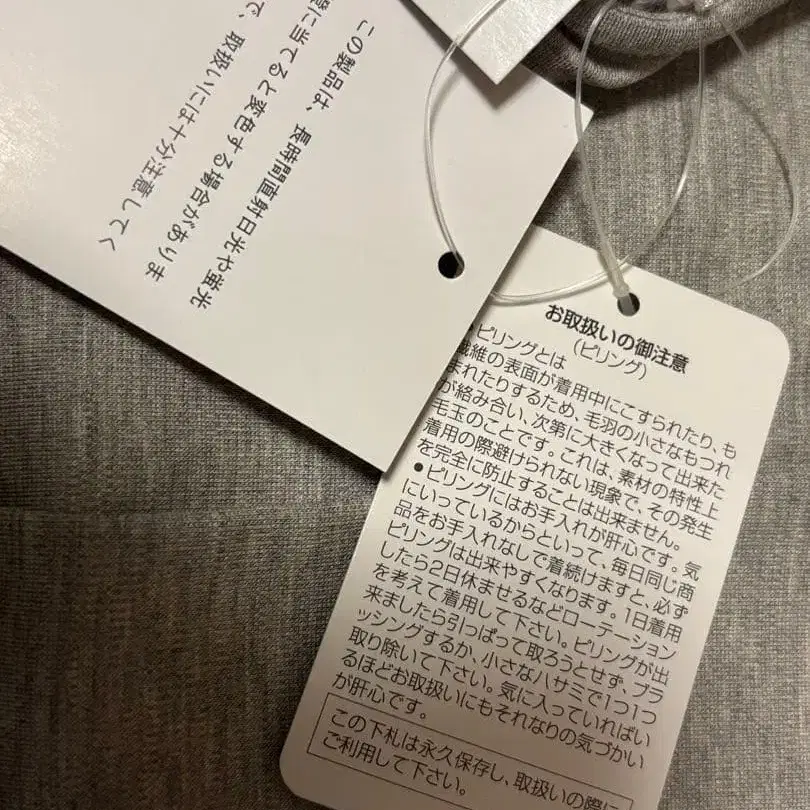 この製品は、長時間直射日光や蛍光
に当てると変色する場合がありま
で、取扱いには十分注意してく
お取扱いの御注意
（ピリング）
ピリングとは
繊維の表面が着用中にこすられたり、も
まれたりするため、毛羽の小さなもつれ
が絡み合い、次第に大きくなって出来た
毛玉のことです。これは、素材の特性上
着用の際避けられない現象で、その発生
を完全に防止することは出来ません。
●ピリングにはお手入れが肝心です。気
にいっているからといって、毎日同じ商
品をお手入れなしで着続けますと、必ず
ピリングは出来やすくなります。1日着用
したら2日休ませるなどローテーション
を考えて着用して下さい。ピリングが出
来ましたら引っぱって取ろうとせず、ブラ
ッシングするか、小さなハサミで1つ1つ
取り除いて下さい。気に入っていればい
るほどお取扱いにもそれなりの気づかい
が肝心です。
この下札は永久保存し、取扱いの際に
ご利用して下さい。